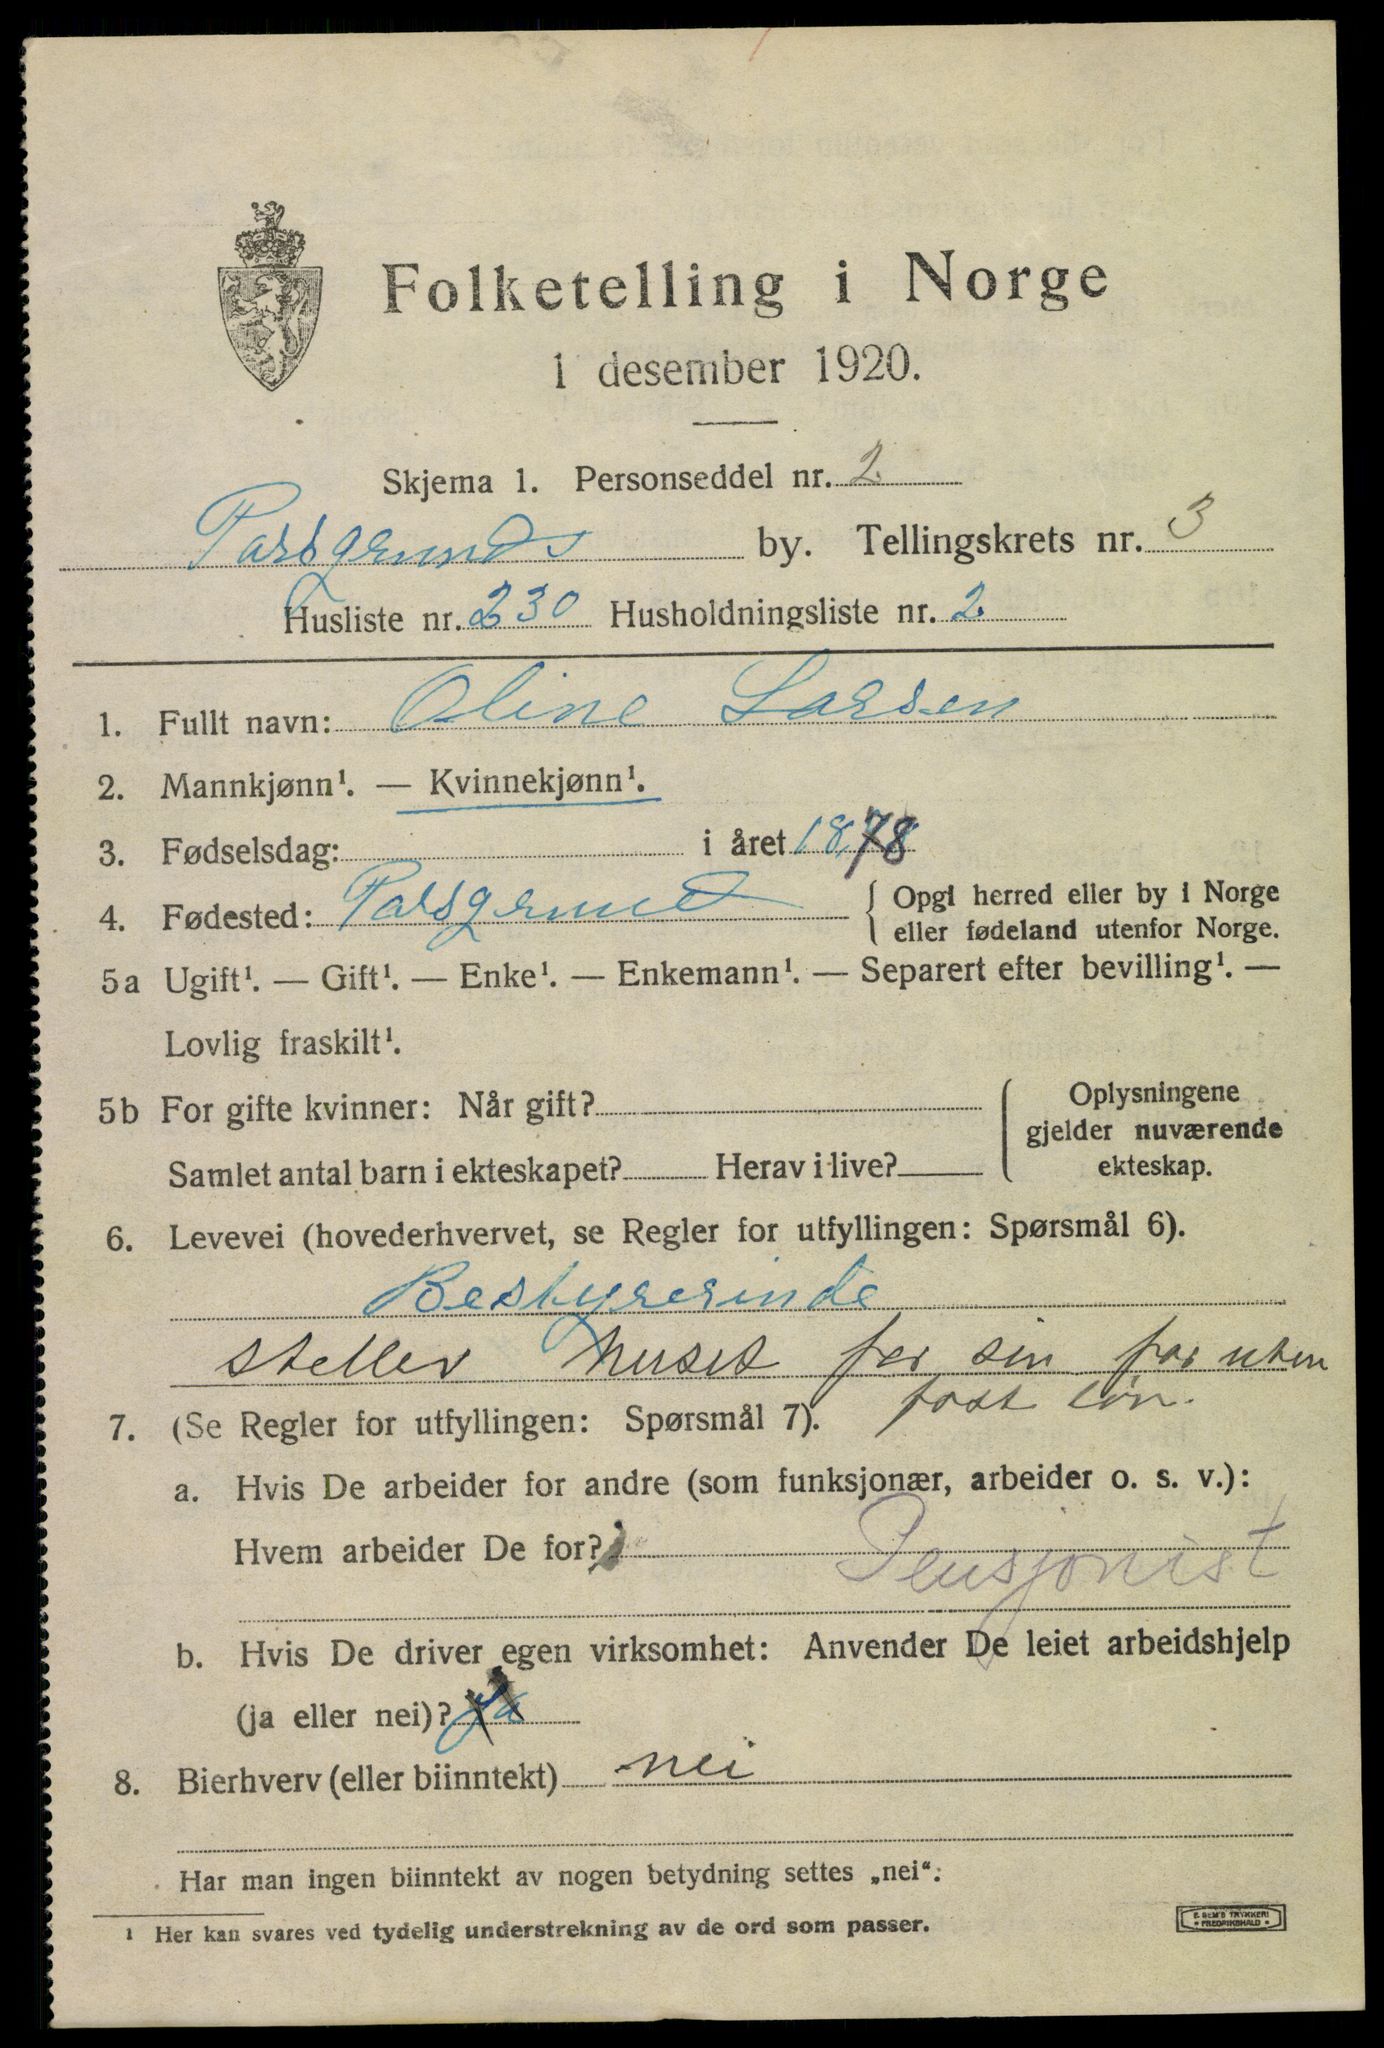 Folketelling i Norge
1 desember 1920.
Skjema 1. Personseddel nr. 2.
Porsgrunds by. Tellingskrets nr. 3
Husliste nr. 230 Husholdningsliste nr. 2.
1. Fullt navn: Oline Larsen
2. Mannkjønn¹. — Kvinnekjønn¹.
3. Fødselsdag: i året 1878
4. Fødested: Porsgrund { Opgi herred eller by i Norge
eller fødeland utenfor Norge.
5a Ugift¹. — Gift¹. — Enke¹. — Enkemann¹. — Separert efter bevilling¹. —
Lovlig fraskilt¹.
5b For gifte kvinner: Når gift? { Oplysningene
gjelder nuværende
Samlet antal barn i ekteskapet? Herav i live? ekteskap.
6. Levevei (hovederhvervet, se Regler for utfyllingen: Spørsmål 6).
Bestyrerinde
steller huset for sin far uten
fast løn.
7. (Se Regler for utfyllingen: Spørsmål 7).
a. Hvis De arbeider for andre (som funksjonær, arbeider o. s. v.):
Hvem arbeider De for?
Pensjonist
b. Hvis De driver egen virksomhet: Anvender De leiet arbeidshjelp
(ja eller nei)? Ja
8. Bierhverv (eller biinntekt) nei
Har man ingen biinntekt av nogen betydning settes „nei“:
¹ Her kan svares ved tydelig understrekning av de ord som passer.
E. SEM'S TRYKKERI
FREDRIKSHALD